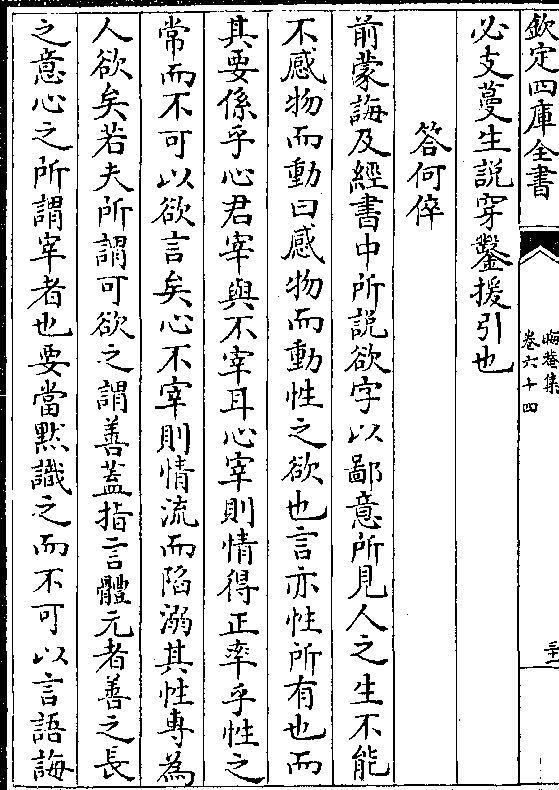 欽定四庫全書
晦菴集
卷六十四
三十二
必支蔓生説穿鑿援引也
答何倅
前蒙誨及經書中所説欲字以鄙意所見人之生不能
不感物而動曰感物而動性之欲也言亦性所有也而
其要係乎心君宰與不宰耳心宰則情得正率乎性之
常而不可以欲言矣心不宰則情流而陷溺其性專為
人欲矣若夫所謂可欲之謂善蓋指言體元者善之長
之意心之所謂宰者也要當黙識之而不可以言語誨